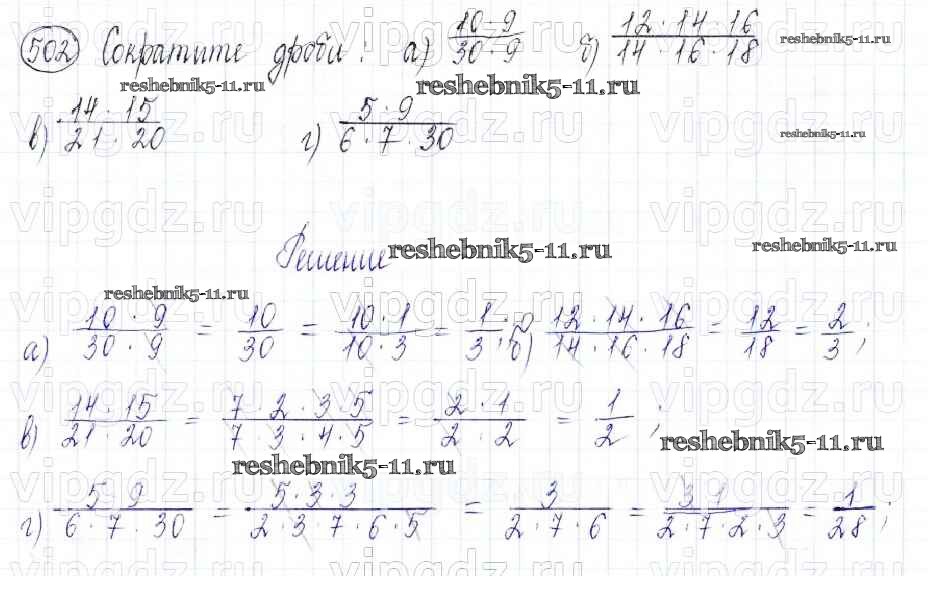 502 Сократите дроби: а) 10·9/30·9 б) 12·14·16/14·16·18
reshebnik5-11.ru reshebnik5-11.ru
в) 14·15/21·20 г) 5·9/6·7·30
reshebnik5-11.ru
vipgdz.ru vipgdz.ru vipgdz.ru
Решение
reshebnik5-11.ru reshebnik5-11.ru
reshebnik5-11.ru
а) 10·9/30·9 = 10/30 = 10·1/10·3 = 1/3; б) 12·14·16/14·16·18 = 12/18 = 2/3;
в) 14·15/21·20 = 7·2·3·5/7·3·4·5 = 2·1/2·2 = 1/2;
reshebnik5-11.ru reshebnik5-11.ru
г) 5·9/6·7·30 = 5·3·3/2·3·7·6·5 = 3/2·7·6 = 3·1/2·7·2·3 = 1/28;